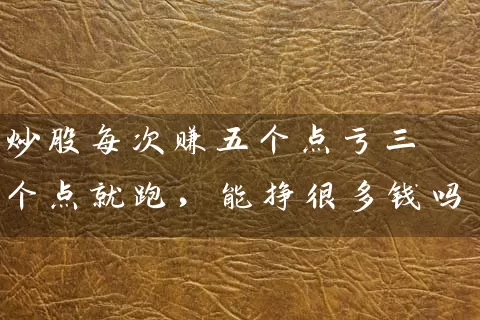 炒股每次赚五个点亏三
个点就跑，能挣很多钱吗